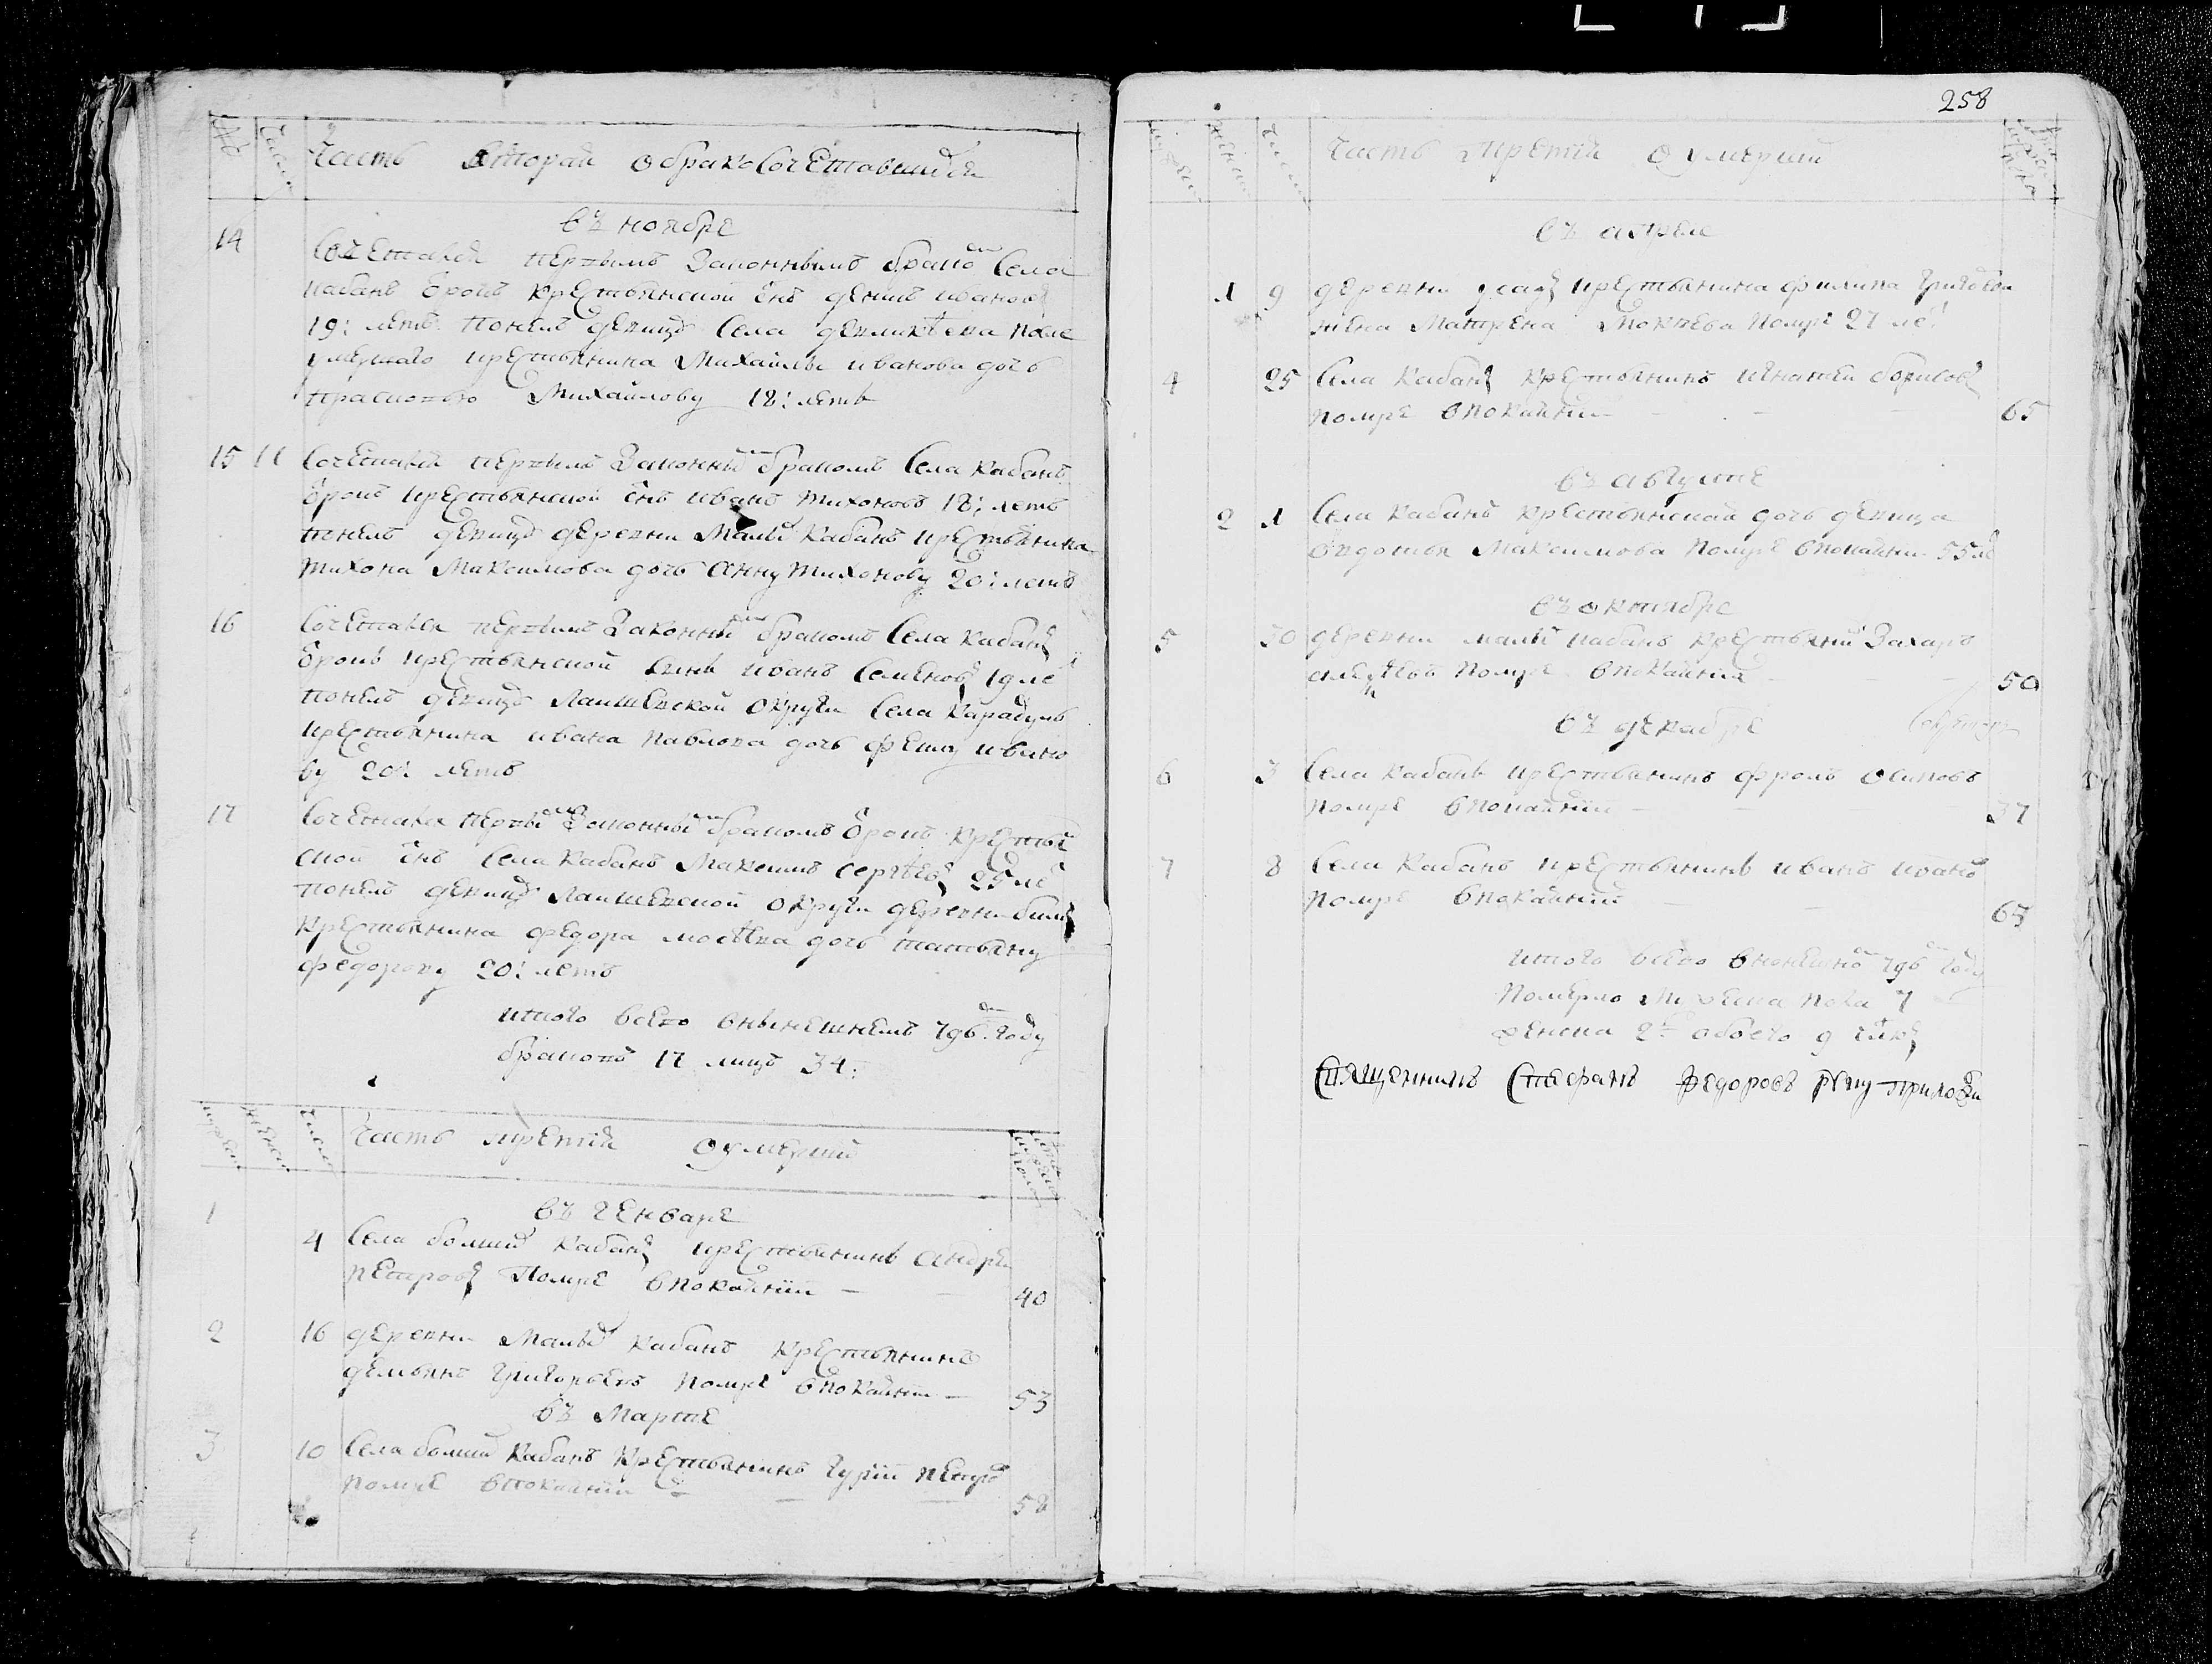 Часть вторая о бракосочетавшихся
въ ноябре
14 Сочетался первымъ законнымъ бракомъ села
кабанъ отрокъ крестьянской снъ денисъ ивановъ
19: летъ понялъ девицу села девликѣева
умершаго крестьянина Михаилы иванова дочь
прасковью Михайлову 18: летъ
15 11 Сочетался первымъ законнымъ бракомъ Села кабанъ
отрокъ крестьянской снъ иванъ тихоновъ 18: летъ
понялъ девицу деревни Малыхъ кабанъ крестьянина
тихона Максимова дочь анну тихонову 20: летъ
16 Сочетался первымъ законнымъ бракомъ Села кабанъ
отрокъ крестьянской сынъ иванъ семеновъ 19 ле
понялъ девицу Лаишевской округи села Карадуль
крестьянина ивана павлова дочь ивано
ву 20: летъ
17 Сочетался первымъ законнымъ бракомъ отрокъ крестьян
ской снъ села кабанъ Максимъ сергѣевъ 25 ле
понялъ девицу Лаишевской округи деревни
крестьянина федора мосѣева дочь татьяну
федорову 20: летъ
итого всего внынешнемъ 796. году
браковъ 17 лицъ 34:
Часть третiя о умершихъ
въ генваре
1 4 Села болшихъ кабанъ крестьянинъ андрей
петровъ помре впокаянiи — 40
2 16 деревни Малыхъ кабанъ крестьянинъ
демьянъ григорьевъ помре впокаянiи — 53
въ Марте
3 10 Села болшихъ кабанъ крестьянинъ гурiи петровъ
помре впокаянiи — 58
258
Часть третiя о умершихъ
въ апреле
1 9 деревни крестьянина филипа григорьева
жена Матрена Мокеева помре 27 ле
4 25 Села кабанъ крестьянинъ игнатей борисовъ
помре впокаянiи — 65
въ августе
2 1 Села кабанъ крестьянская дочь девица
овдотья Максимова помре впокаянiи 55 ле
въ октябре
5 30 деревни малыхъ кабанъ крестьянинъ Захаръ
помре впокаянiи — 50
въ декабре
6 3 Села кабанъ крестьянинъ фролъ осиповъ
помре впокаянiи — 37
7 8 Села кабанъ крестьянинъ иванъ ивановъ
помре впокаянiи — 65
итого всего внонешномъ 796 году
померло мужеска пола 7
женска 2 обоего 9 члкъ
Священникъ Стефанъ Федоровъ руку приложилъ